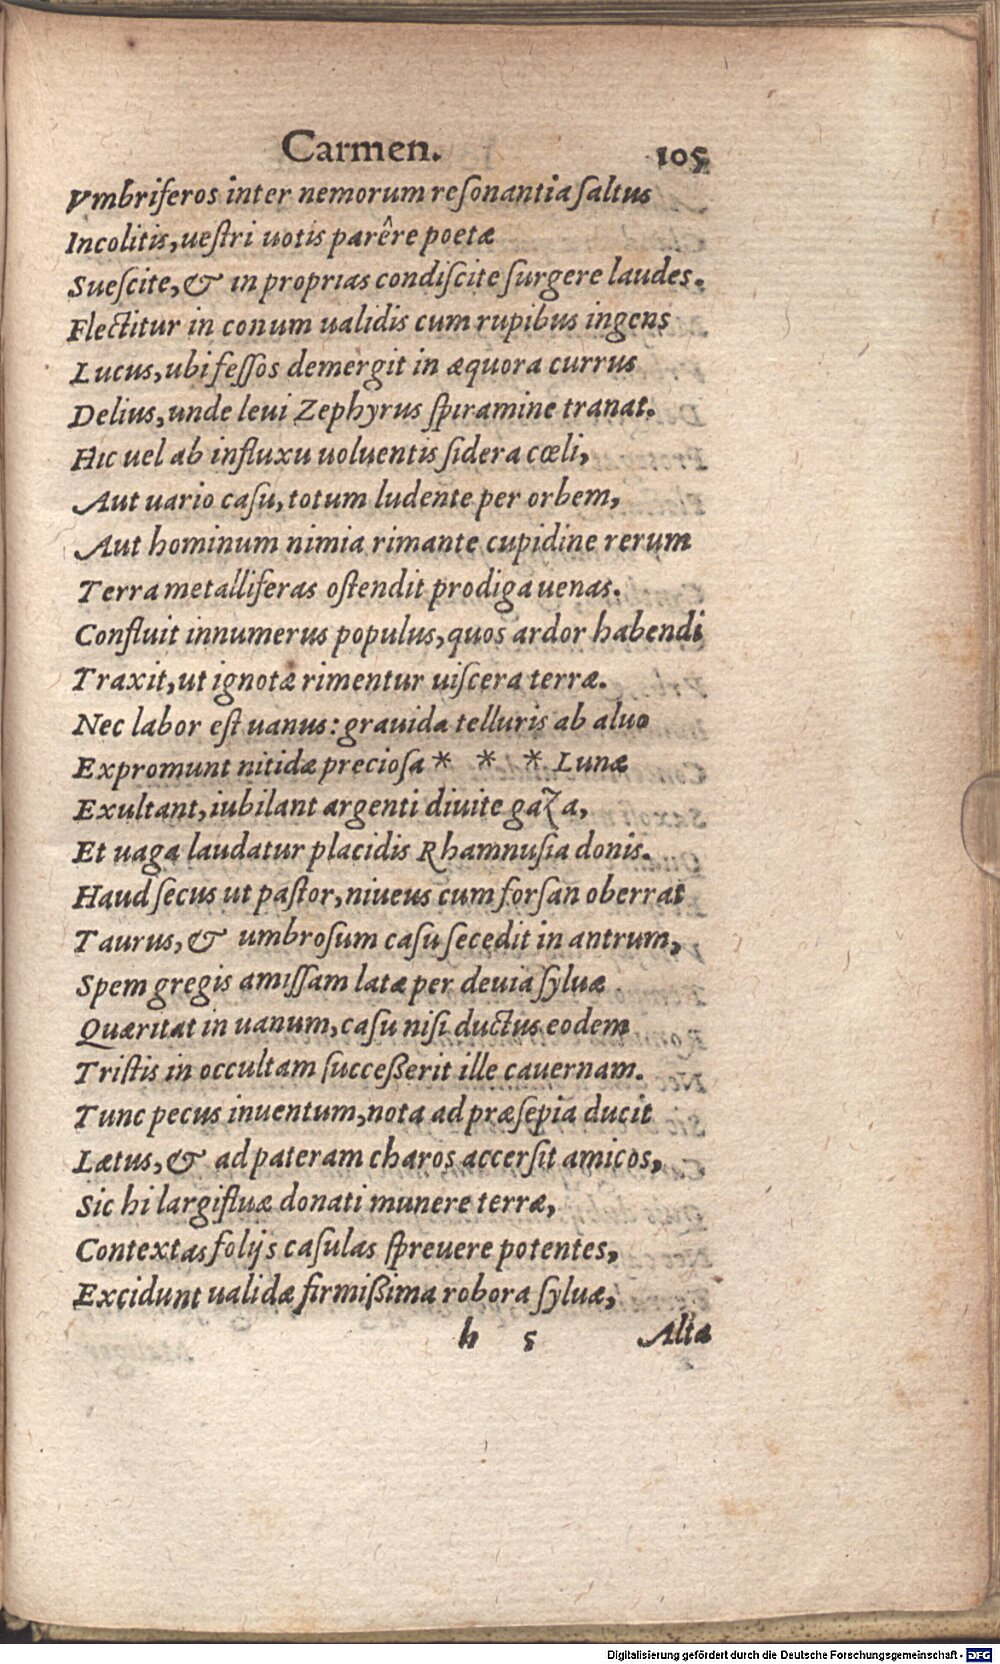 Carmen. 105
Vmbriferos inter nemorum reſonantia ſaltus
Incolitis, ueſtri uotis parêre poetæ
Sueſcite, & in proprias condiſcite ſurgere laudes.
Flectitur in conum ualidis cum rupibus ingens
Lucus, ubi feſſos demergit in æquora currus
Delius, unde leui Zephyrus ſpiramine tranat.
Hic uel ab influxu uoluentis ſidera cœli,
Aut uario caſu, totum ludente per orbem,
Aut hominum nimia rimante cupidine rerum
Terra metalliferas oſtendit prodiga uenas.
Confluit innumerus populus, quos ardor habendi
Traxit, ut ignotæ rimentur uiſcera terræ.
Nec labor eſt uanus: grauida telluris ab aluo
Expromunt nitidæ precioſa * * * Lunæ
Exultant, iubilant argenti diuite gaza,
Et uaga laudatur placidis Rhamnuſia donis.
Haud ſecus ut paſtor, niueus cum forſan oberrat
Taurus, & umbroſum caſu ſecedit in antrum,
Spem gregis amiſſam latæ per deuia ſyluæ
Quæritat in uanum, caſu niſi ductus eodem
Triſtis in occultam succeßerit ille cauernam.
Tunc pecus inuentum, nota ad præſepia ducit
Lætus, & ad pateram charos accerſit amicos,
Sic hi largifluæ donati munere terræ,
Contextas folijs caſulas ſpreuere potentes,
Excidunt ualidæ firmißima robora ſyluæ,
h 5 Alta
Digitalisierung gefördert durch die Deutsche Forschungsgemeinschaft - DFG